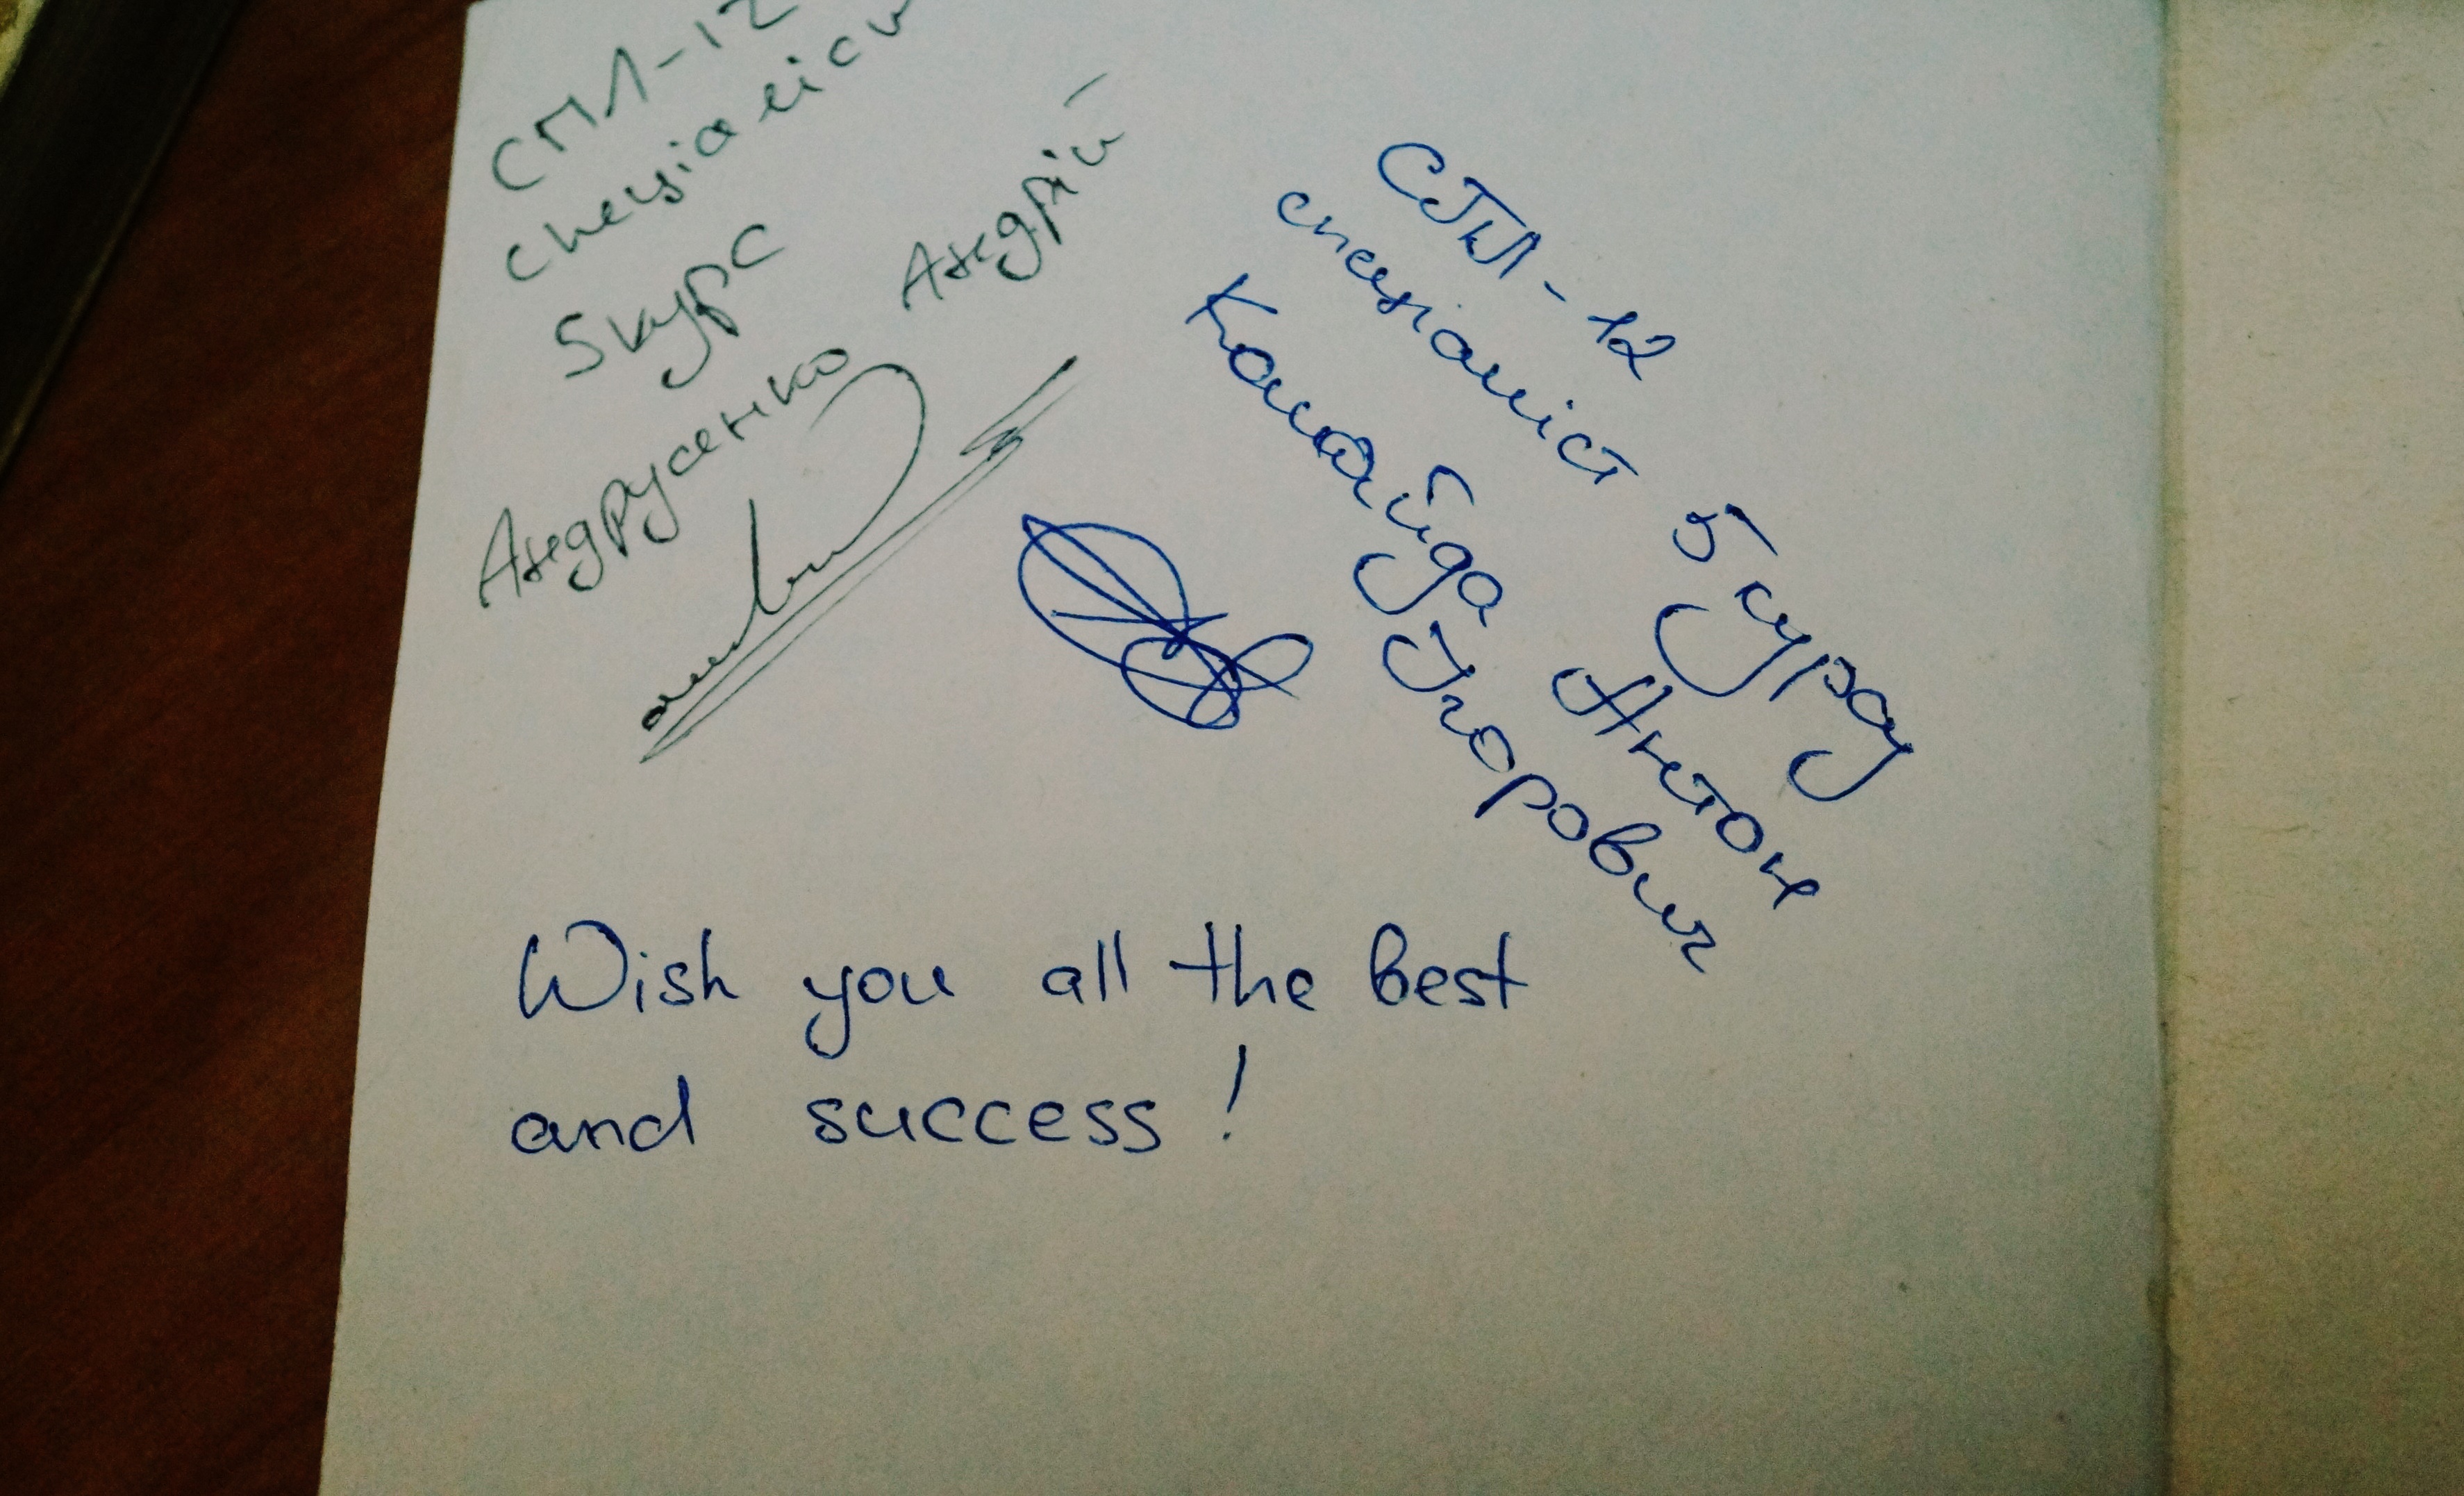 СПЛ-12
спеціаліст
Skype
Андрусенко Андрій
СПЛ-12
спеціаліст 5 курсу
Колайда Антон
Ігорович
Wish you all the best
and success!